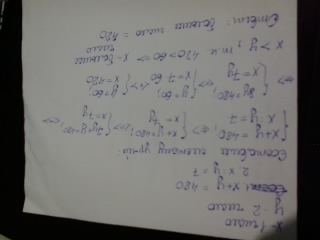 x - 1 число
y - 2 число
x+y = 480
x : y = 7
Составим систему ур-ий.
{x+y=480 {x+y=480 {7y+y=480
{x:y=7 <=> {x=7y <=> {x=7y <=>
<=> {8y=480; {y=60; {y=60;
{x=7y <=> {x=7·60 <=> {x=420
x > y, т.к. 420>60 => x - большее
число
Ответ: большее число = 420